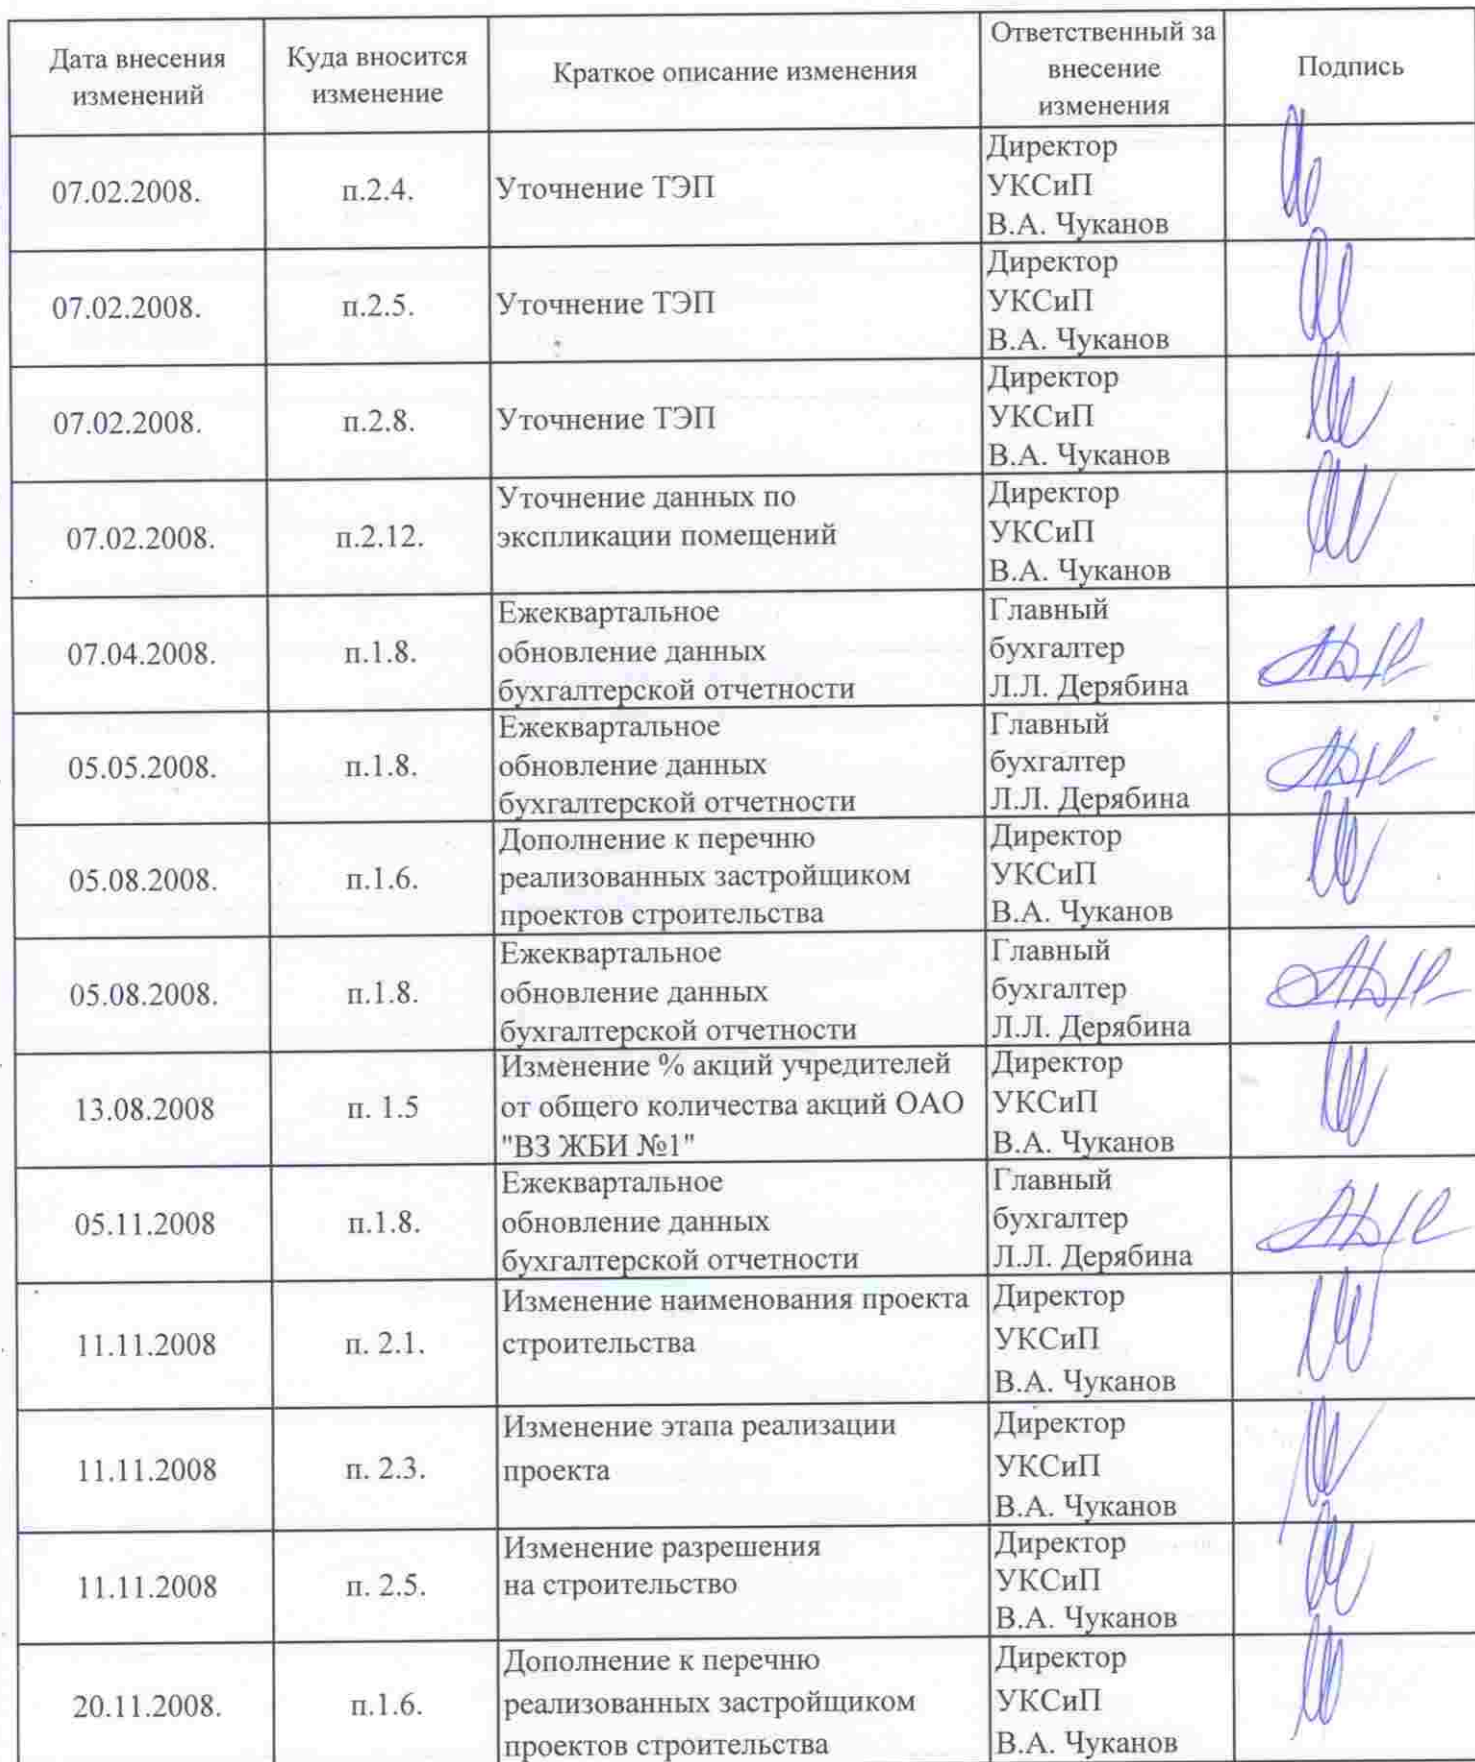 Дата внесения
изменений
Куда вносится
изменение
Краткое описание изменения
Ответственный за
внесение
изменения
Подпись
07.02.2008.
п.2.4.
Уточнение ТЭП
Директор
УКСиП
В.А. Чуканов
07.02.2008.
п.2.5.
Уточнение ТЭП
Директор
УКСиП
В.А. Чуканов
07.02.2008.
п.2.8.
Уточнение ТЭП
Директор
УКСиП
В.А. Чуканов
07.02.2008.
п.2.12.
Уточнение данных по
экспликации помещений
Директор
УКСиП
В.А. Чуканов
07.04.2008.
п.1.8.
Ежеквартальное
обновление данных
бухгалтерской отчетности
Главный
бухгалтер
Л.Л. Дерябина
05.05.2008.
п.1.8.
Ежеквартальное
обновление данных
бухгалтерской отчетности
Главный
бухгалтер
Л.Л. Дерябина
05.08.2008.
п.1.6.
Дополнение к перечню
реализованных застройщиком
проектов строительства
Директор
УКСиП
В.А. Чуканов
05.08.2008.
п.1.8.
Ежеквартальное
обновление данных
бухгалтерской отчетности
Главный
бухгалтер
Л.Л. Дерябина
13.08.2008
п. 1.5
Изменение % акций учредителей
от общего количества акций ОАО
"ВЗ ЖБИ №1"
Директор
УКСиП
В.А. Чуканов
05.11.2008
п.1.8.
Ежеквартальное
обновление данных
бухгалтерской отчетности
Главный
бухгалтер
Л.Л. Дерябина
11.11.2008
п. 2.1.
Изменение наименования проекта
строительства
Директор
УКСиП
В.А. Чуканов
11.11.2008
п. 2.3.
Изменение этапа реализации
проекта
Директор
УКСиП
В.А. Чуканов
11.11.2008
п. 2.5.
Изменение разрешения
на строительство
Директор
УКСиП
В.А. Чуканов
20.11.2008.
п.1.6.
Дополнение к перечню
реализованных застройщиком
проектов строительства
Директор
УКСиП
В.А. Чуканов